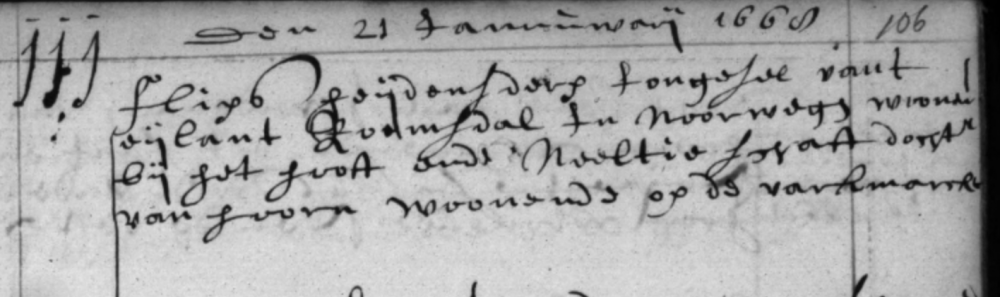 Den 21 Januwarij 1668 106
flips heijdensderp Jongesel vant
eijlant Romsdal In Noorwegen woonen
bij het hooft ende Neeltie schaft docht^r
van hoorn woonende op de varkmarckt